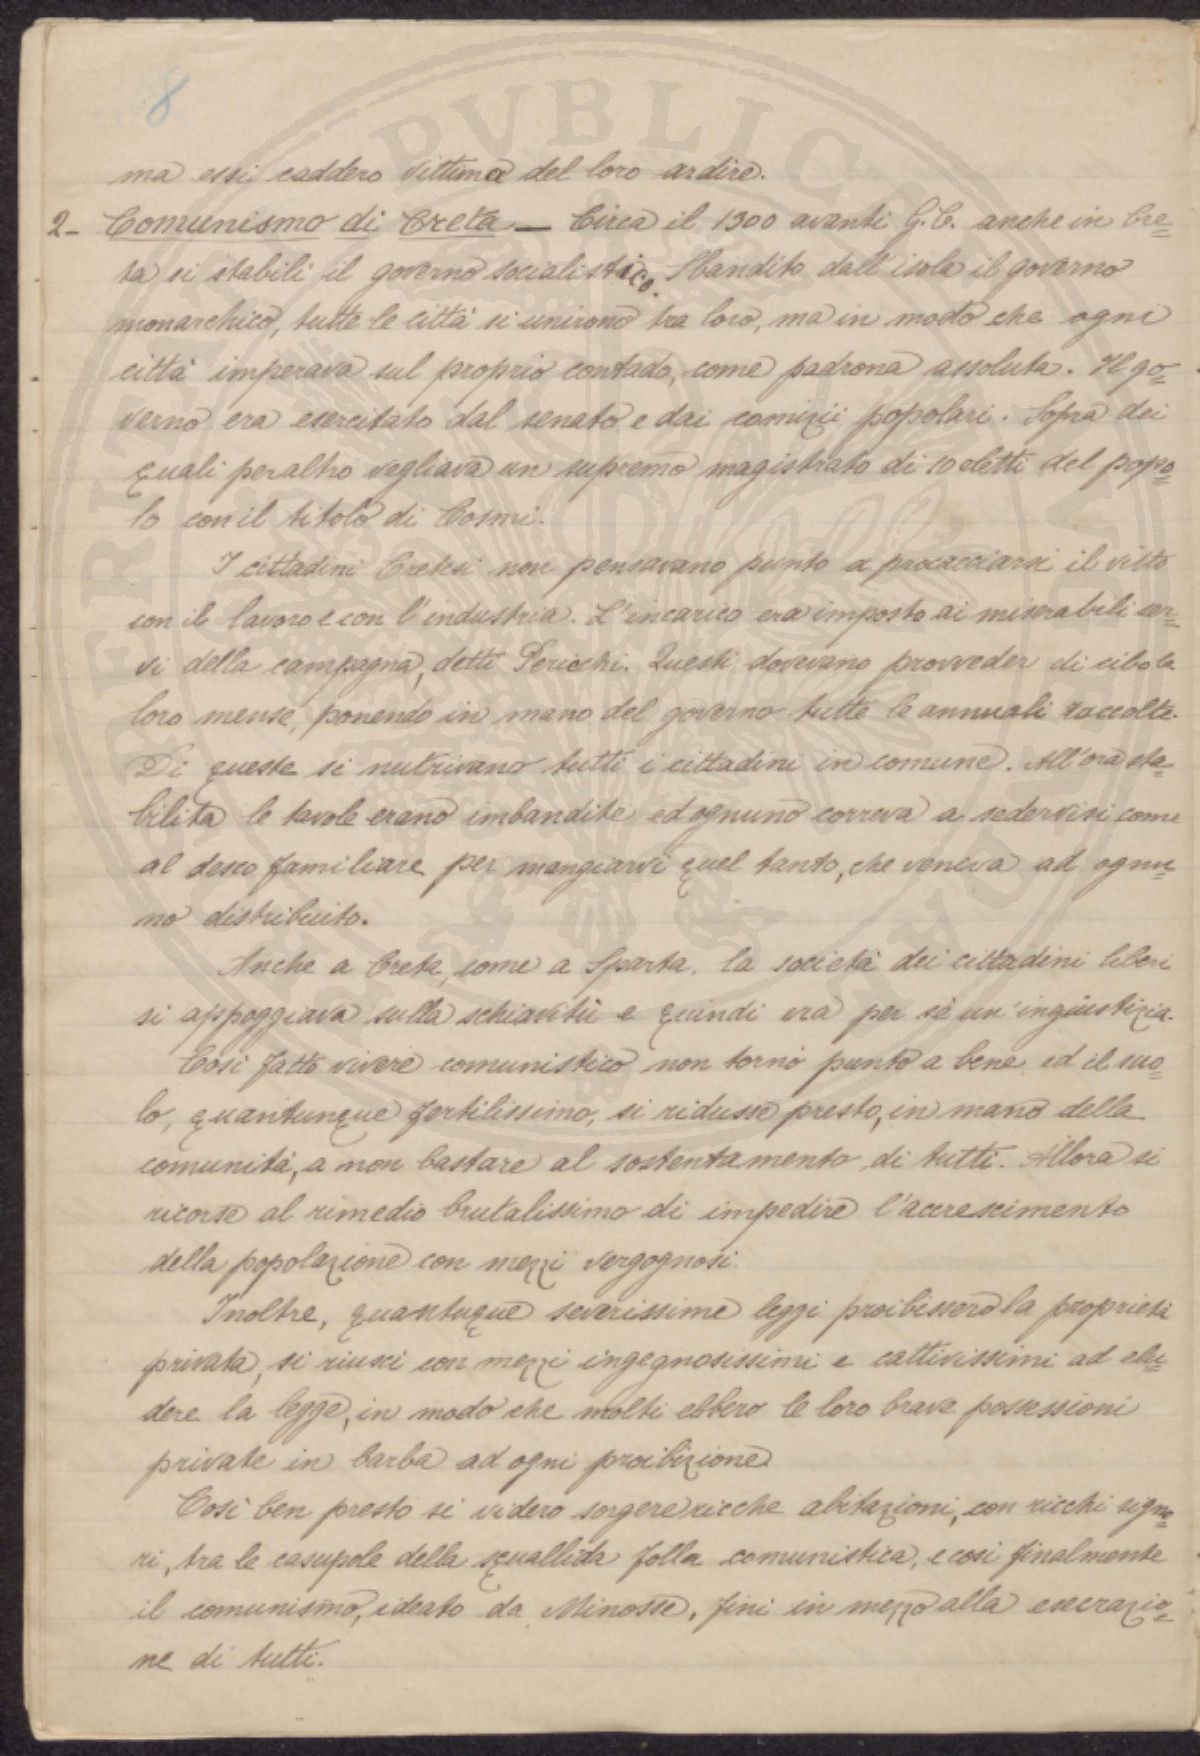 8
ma essi caddero vittima del loro ardire.
2- Comunismo di Creta — Circa il 1300 avanti G.C. anche in Cre=
ta si stabili il governo socialistico. Sbandito dall'isola il governo
monarchico, tutte le città si unirono tra loro, ma in modo che ogni
città imperava sul proprio contado, come padrona assoluta. Il go=
verno era esercitato dal senato e dai comizii popolari. Sopra dei
quali peraltro vegliava un supremo magistrato di 10 eletti del popo=
lo con il titolo di Cosmi.
I cittadini Cretesi non pensavano punto a procacciarsi il vitto
con il lavoro e con l'industria. L'incarico era imposto ai miserabili ser=
vi della campagna, detti Periechi. Questi dovevano provveder di cibo le
loro mense, ponendo in mano del governo tutte le annuali raccolte.
Di queste si nutrivano tutti i cittadini in comune. All'ora sta=
bilita le tavole erano imbandite ed ognuno correva a sedervisi come
al desco familiare per mangiarvi quel tanto, che veniva ad ognu=
no distribuito.
Anche a Creta, come a Sparta, la società dei cittadini liberi
si appoggiava sulla schiavitù e quindi era per sè un'ingiustizia.
Cosi fatto vivere comunistico non tornò punto a bene ed il suo=
lo, quantunque fertilissimo, si ridusse presto, in mano della
comunità, a non bastare al sostentamento di tutti. Allora si
ricorse al rimedio brutalissimo di impedire l'accrescimento
della popolazione con mezzi vergognosi.
Inoltre, quantuque severissime leggi proibissero la proprietà
privata, si riusci con mezzi ingegnosissimi e cattivissimi ad elu=
dere la legge, in modo che molti ebbero le loro brave possessioni
private in barba ad ogni proibizione.
Cosi ben presto si videro sorgere ricche abitazioni, con ricchi signo=
ri, tra le casupole della squallida folla comunistica, e cosi finalmente
il comunismo, ideato da Minosse, fini in mezzo alla esecrazio=
ne di tutti.